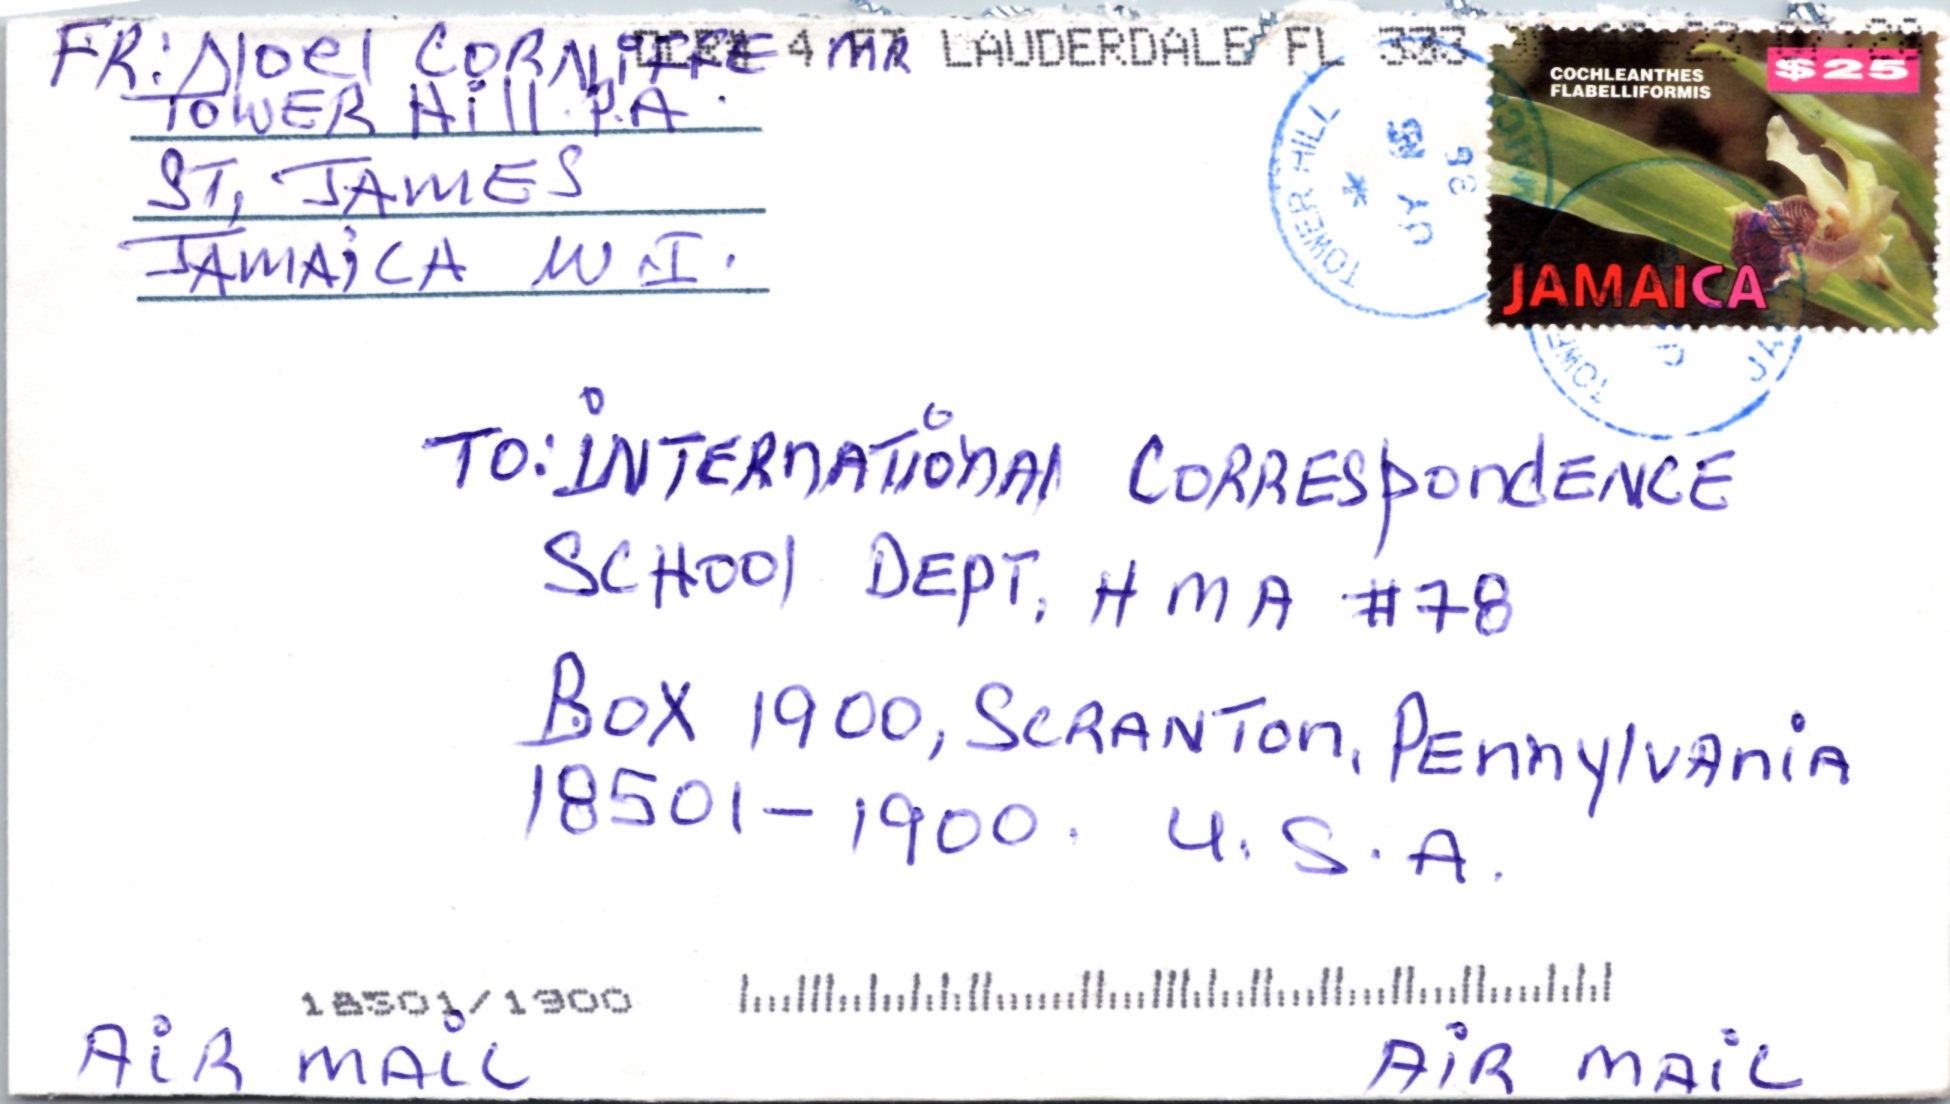 FR: Noel CORNiFFE MR
TOWER Hill P.A.
ST, JAMES
JAMAiCA W.I.
4 FT LAUDERDALE FL 333
COCHLEANTHES
FLABELLIFORMIS
$25
JAMAICA
TOWER HILL
JY
98
TO: iNTERnATionAl CORRESpondENCE
SCHool DEpT, HMA #78
Box 1900, SCRANTon, PEnnylvAniA
18501-1900. U.S.A.
18501/1900
AiR MAiL
AiR MAiL